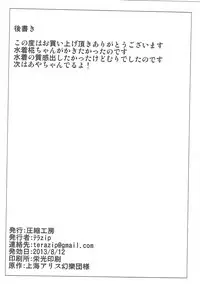 後書き
この度はお買い上げ頂きありがとうございます
水着椛ちゃんがかきたかったのです
水着の質感出したかったけどむりでしたのです
次はあやちゃんでるよ！
発行：圧縮工房
発行者：テラzip
連絡先：terazip@gmail.com
発効日：2013/8/12
印刷所：栄光印刷
原作：上海アリス幻樂団様